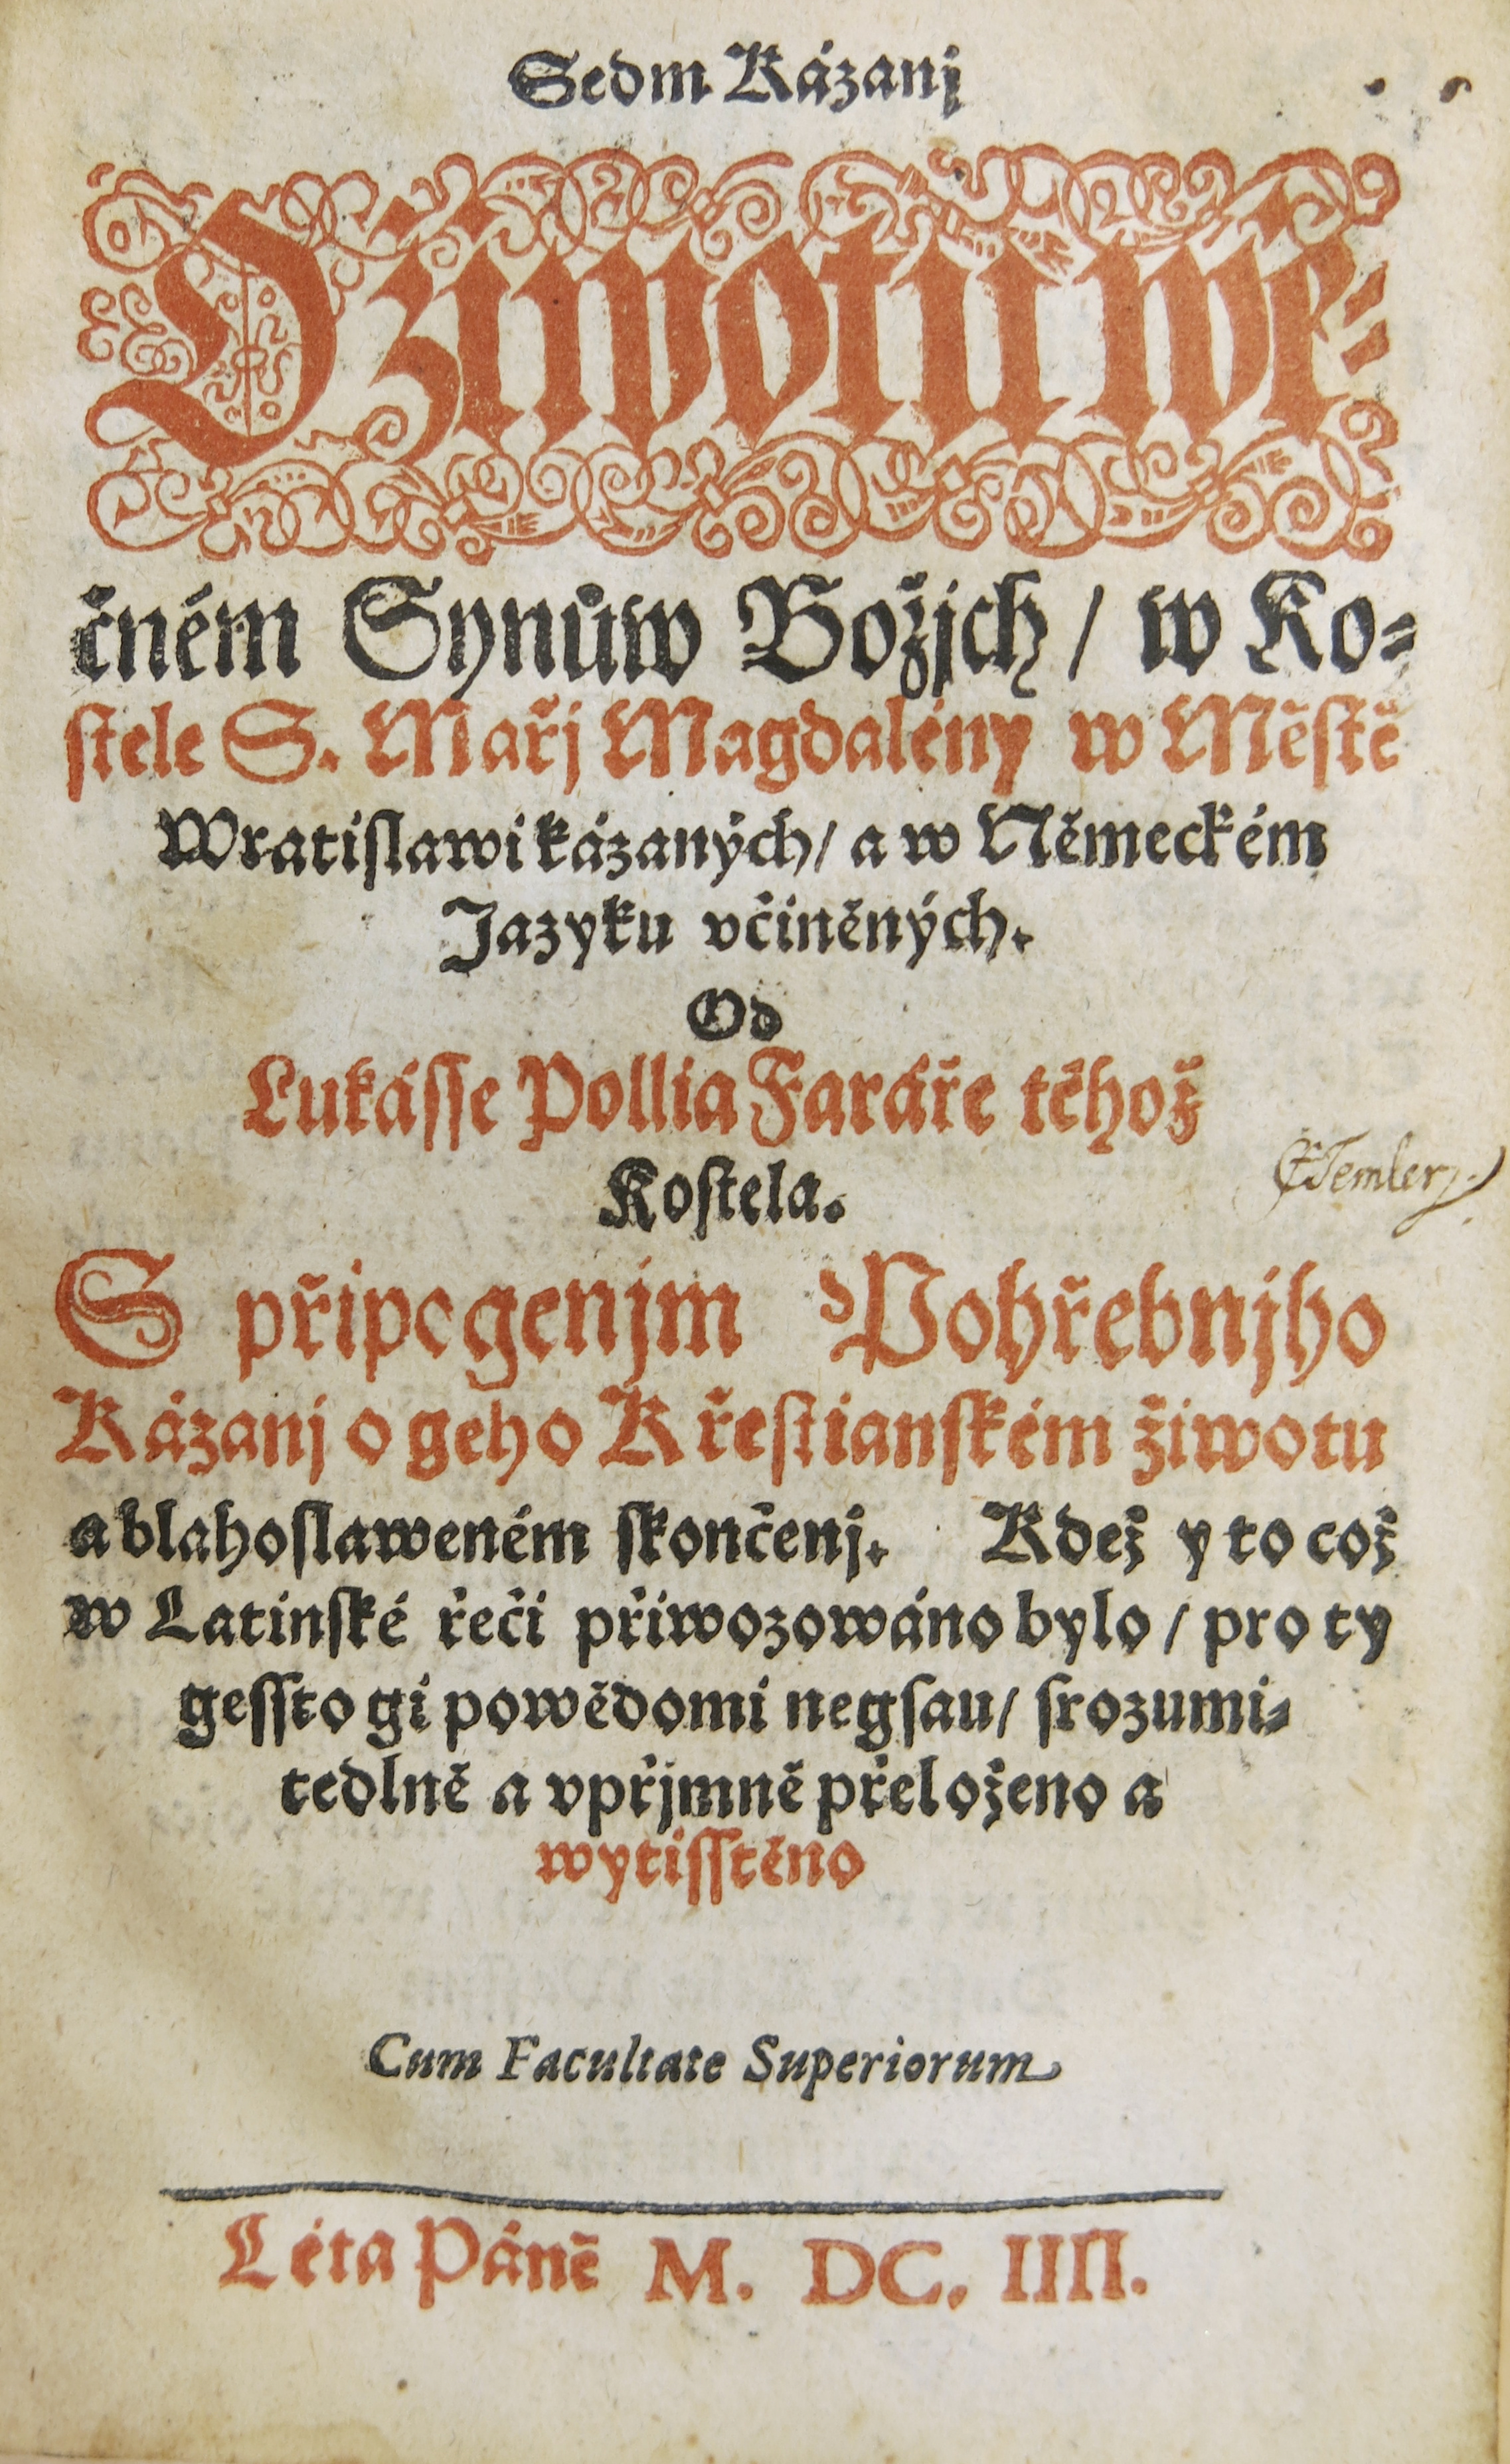 Sedm Kázanj
O žiwotu wě-
čném Synůw Božjch / w Ko-
stele S. Mařj Magdalény w Městě
Wratislawi kázaných / a w Německém
Jazyku včiněných.
Od
Lukásse Pollia Faráře téhož
Kostela.
S připogenjm Pohřebnjho
Kázanj o geho Křestianském žiwotu
a blahoslaweném skončenj. Kdež y to což
w Latinské řeči přiwozowáno bylo / pro ty
gessto gi powědomi negsau / srozumi-
tedlně a vpřjmně přeloženo a
wytisstěno
Cum Facultate Superiorum
Léta Páně M. DC. IIII.